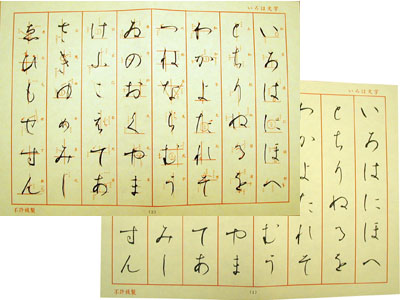 いろは文字
いろはにほへ
とちりぬるを
わかよたれそ
つねならむう
ゐのおくやま
けふこえてあ
さきゆめみし
ゑひもせすん
不許複製
いろは文字
いろはにほへ
とちりぬるを
わかよたれそ
むう
やま
てあ
みし
すん
不許複製